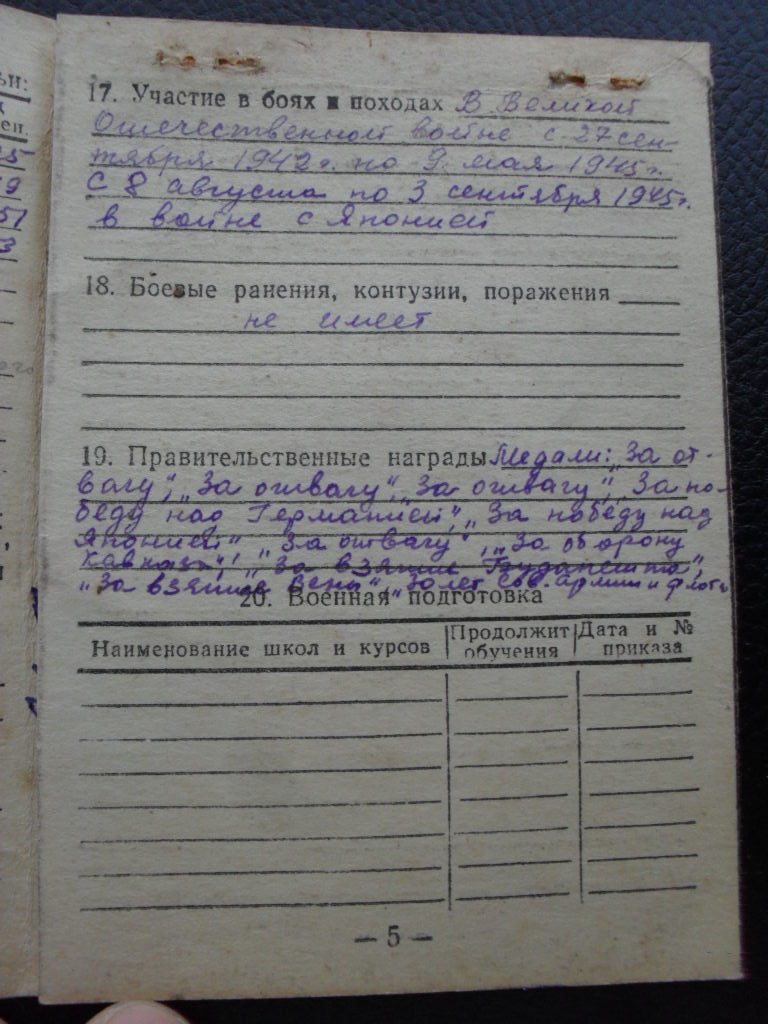 ьи:
ен.
17. Участие в боях и походах В Великой
Отечественной войне с 27 сен-
тября 1942г. по 9 мая 1945г.
С 8 августа по 3 сентября 1945г.
в войне с Японией
18. Боевые ранения, контузии, поражения
не имеет
19. Правительственные награды Медали: „За от-
вагу“, „За отвагу“, „За отвагу“, „За по-
беду над Германией“, „За победу над
Японией“ „За отвагу“, „За оборону
Кавказа“, „За взятие Будапешта“,
„За взятие Вены“, „30 лет Сов. армии и флота
20. Военная подготовка
Наименование школ и курсов Продолжит обучения Дата и № приказа
— 5 —